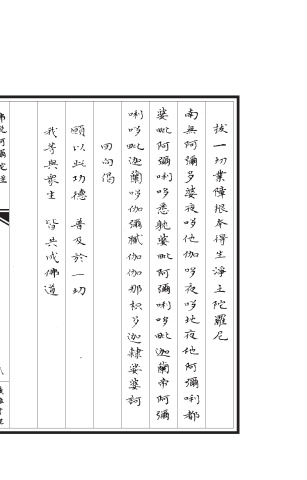 拔一切業障根本得生淨土陀羅尼
南無阿彌多婆夜哆他伽哆夜哆地夜他阿彌唎都
婆毗阿彌唎哆悉耽婆毗阿彌唎哆毗迦蘭帝阿彌
唎哆毗迦蘭哆伽彌膩伽伽那枳多迦隸娑婆訶
回向偈
願以此功德 普及於一切
我等與眾生 皆共成佛道
佛說阿彌陀經
八